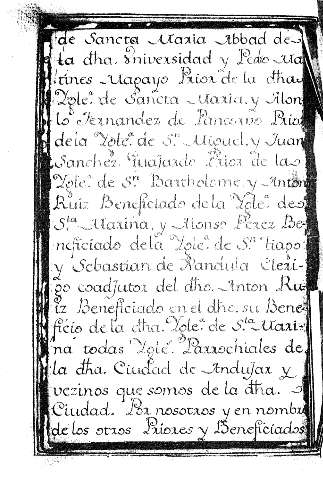 de Sancta Maria Abbad de
la dha. Vniversidad y Pedro Ma
tines Magayo Prior de la dha
Ygleª. de Sancta Maria, y Alon
so Fernandez de Pancorvo Prior
de la Ygleª. de Sn. Miguel, y Juan
Sanchez Guajardo Prior de la
Ygleª. de Sn. Bartholome y Anton
Ruiz Beneficiado de la Ygleª. de
Sta. Marina, y Alonso Perez Be-
neficiado dela Ygleª. de Sn. tiago
y Sebastian de Xandula Cleri-
go coadjutor del dho. Anton Ru
iz Beneficiado en el dho. su Bene
ficio de la dha. Ygleª. de Sta. Mari-
na todas Ygleª. Parrochiales de
la dha. Ciudad de Andujar y
vezinos que somos de la dha.
Ciudad. Por nosotros y en nombre
de los otros Priores y Beneficiados